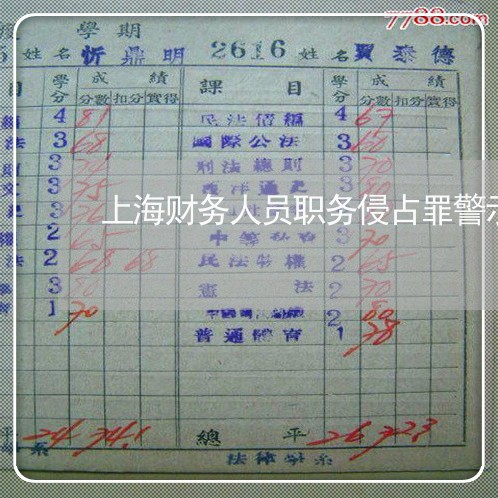 7788.com
學期
姓名 忻鼎明 2616 姓名 賈泰德
目 學分 成績 課目 學分 成績
分數 扣分 實得 分數 扣分 實得
4 81 民法債編 4 67
法 3 68 國際公法 3 60
3 刑法總則 3 70
文 3 75 西洋通史 3 80
3
上海财务人员职务侵占罪警示
2 65 3 70
法 2 68 68 民法物權 2 65
3 80 憲法 2 70
1 70 2 80
普通體育 1 78
平 24 74.1 總平 26 72.3
系 法律學系